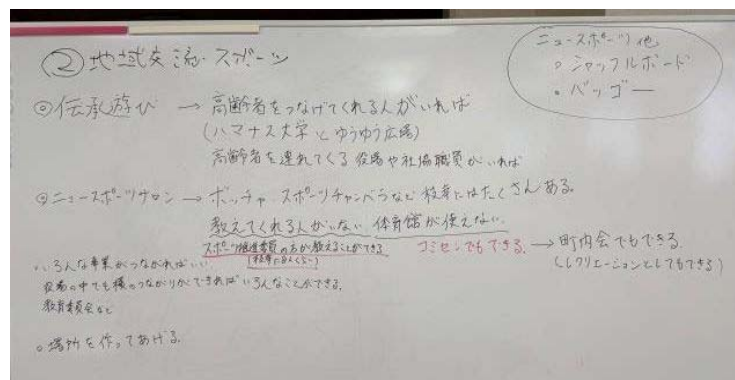 ② 地域交流・スポーツ
ニュースポーツ他
○ シャッフルボード
○ バッゴー
◎伝承遊び → 高齢者をつなげてくれる人がいれば
(ハマナス大学とゆうゆう広場)
高齢者を連れてくる役場や社協職員がいれば
◎ニュースポーツサロン → ボッチャ、スポーツチャンバラなど種類はたくさんある。
教えてくれる人がいない、体育館が使えない。
スポーツ推進委員の方が教えることができる
コミセンでもできる。→ 町内会でもできる。
(レクリエーションとしてもできる)
○いろんな事業がつながればいい
役場の中でも横のつながりができればいろんなことができる。
教育委員会など
○場所を作ってあげる。